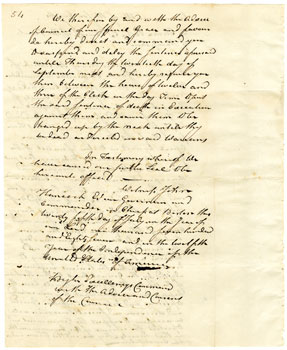 54
We therefore by and with the Advice
of our special Grace and favour
Do hereby direct and command you
to suspend and delay the Sentence aforesaid
until Thursday the twentieth day of
September next and hereby require you
then between the hours of twelve and
three of the Clock in the day Time
the said Sentence of death in Execution
against them and cause them to be
hanged up by the neck until they
dead
In Testimony whereof We
have caused our Seal to be
hereunto affixed
Witness John
Hancock Esqr Governor and
Commander in Chief at Boston this
twenty day of July in the year of
our Lord one thousand seven hundred
and Eighty seven and in the twelfth
year of the Independence of the
United States of America
By his Excellencys Command
with the Advice and Consent
of the Council